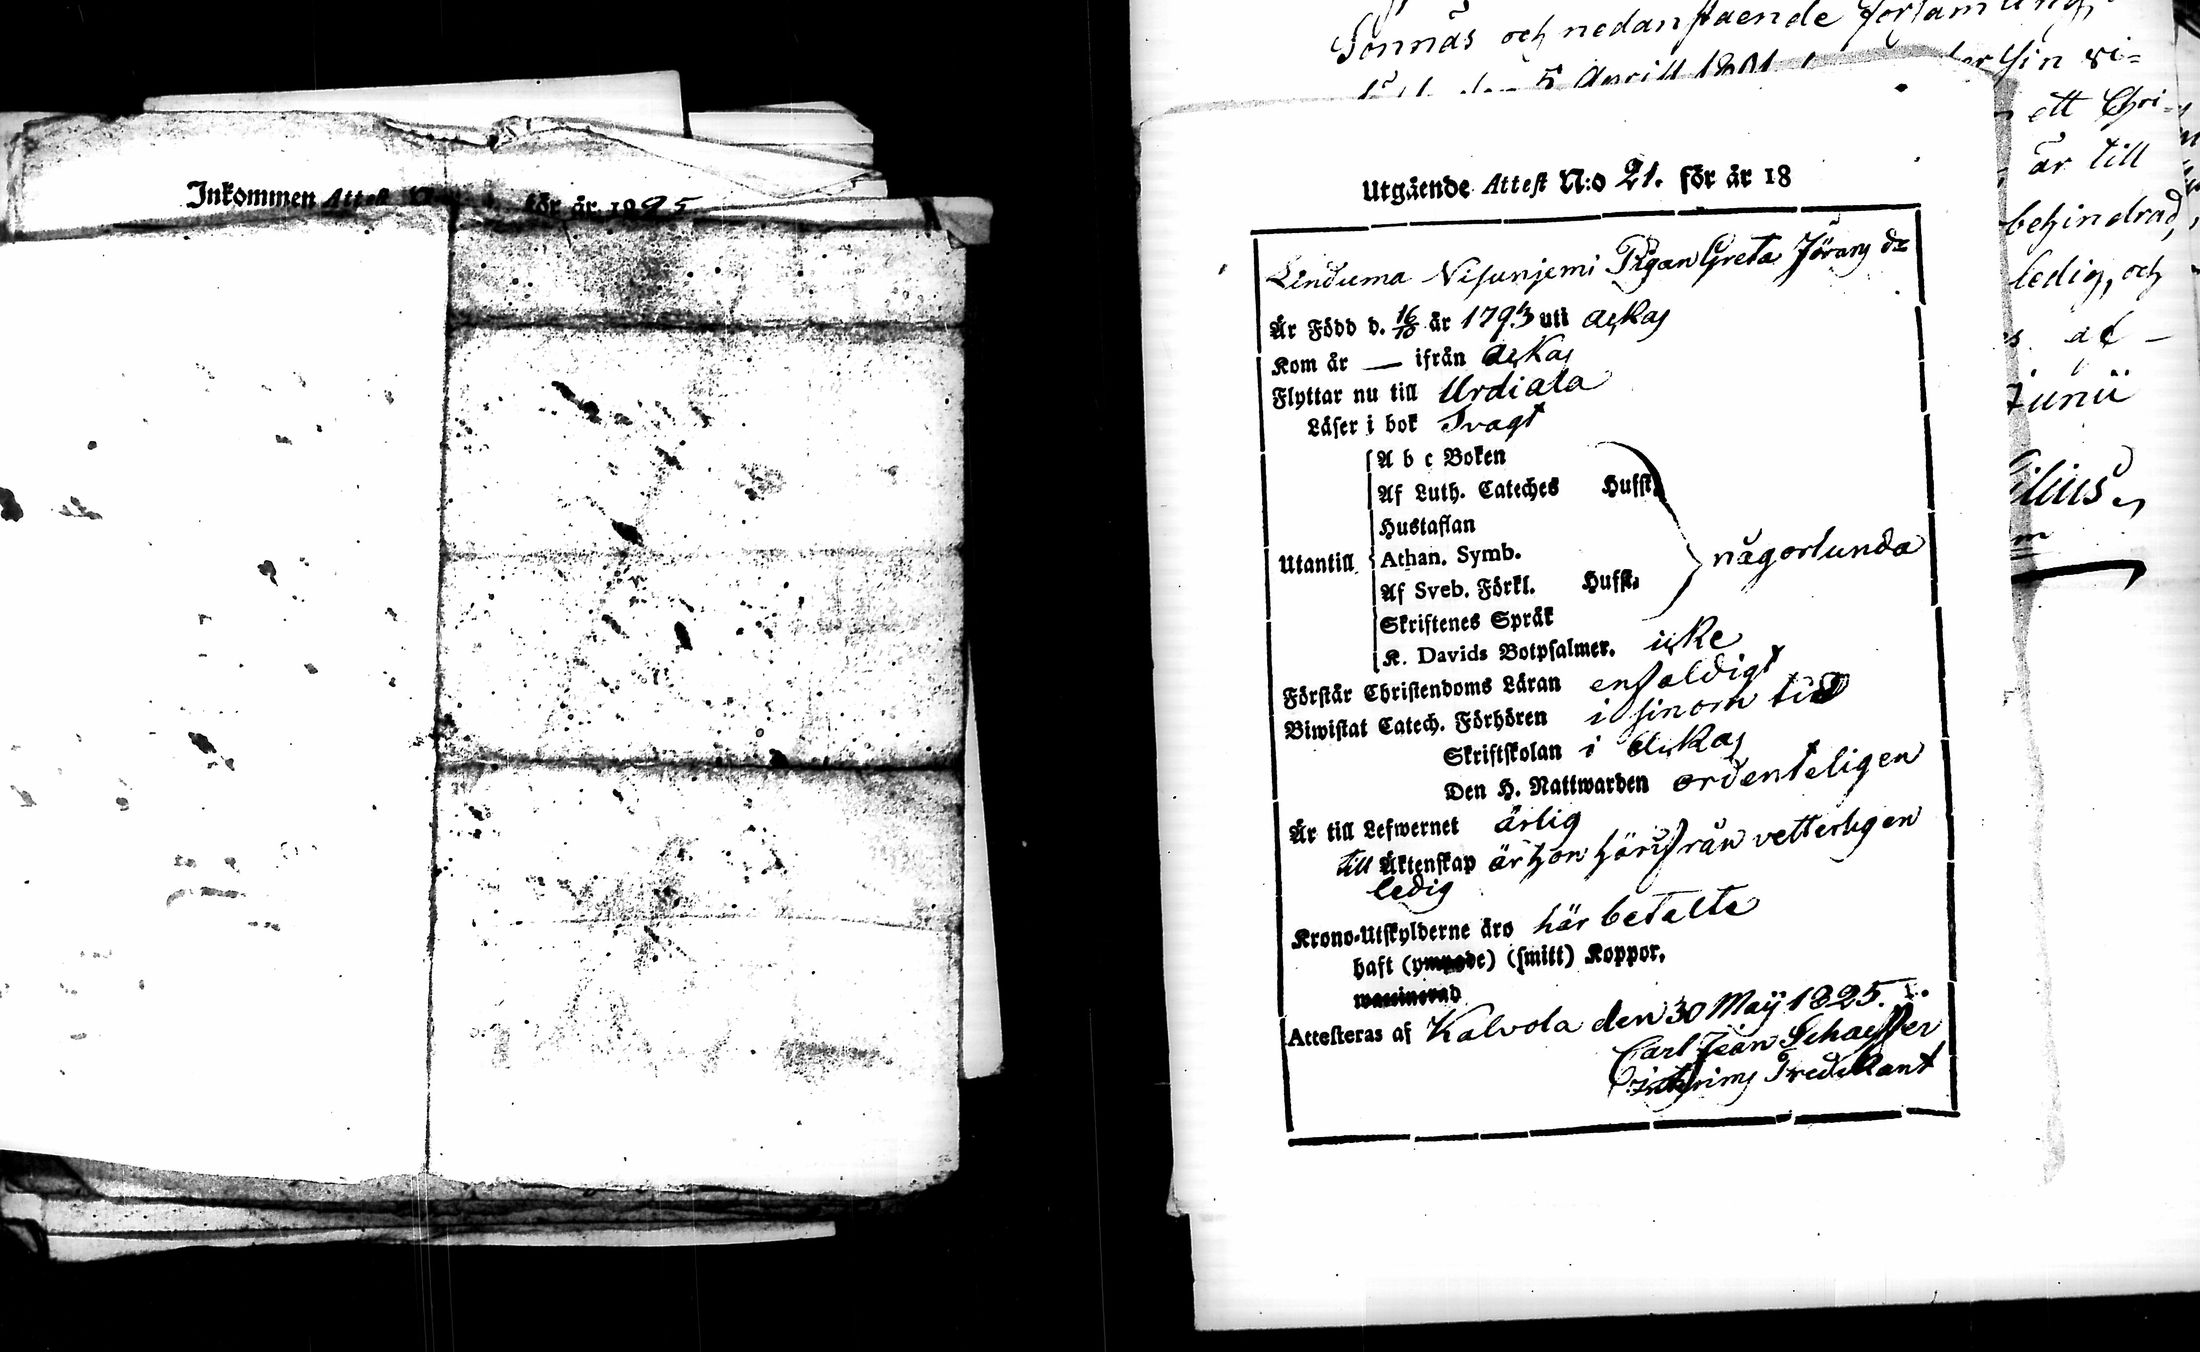 Inkommen Attest för år 1825
Sonnäs och nedanstaende
den 5 Aprill 1801
ett Chri-
är till
behindrad,
ledig, och
Junii
Utgående Attest N:o 21. för år 18
Linduma Nisunjemi Pigan Greta Jörans dr
Är Född d. 16/10 år 1793 uti Ackas
Kom år — ifrån Ackas
Flyttar nu till Urdiala
Läser i bok Svagt
A b c Boken
Af Luth. Cateches Hufst.
Hustaflan
Utantill Athan. Symb. någorlunda
Af Sveb. Förkl. Hufst.
Skriftenes Språk
K. Davids Botpsalmer. icke
Förstår Christendoms Läran enfaldigt
Biwistat Catech. Förhören i sinom tid
Skriftskolan i Ackas
Den H. Nattwarden ordenteligen
Är till Lefwernet ärlig
till Äktenskap är hon härifrån vetterligen
ledig
Krono-Utskylderne äro här betalte
haft (ympade) (smitt) Koppor,
waccinerad
Attesteras af Kalvola den 30 Maÿ 1825.
Carl Jean Schaeffer
interims Predikant